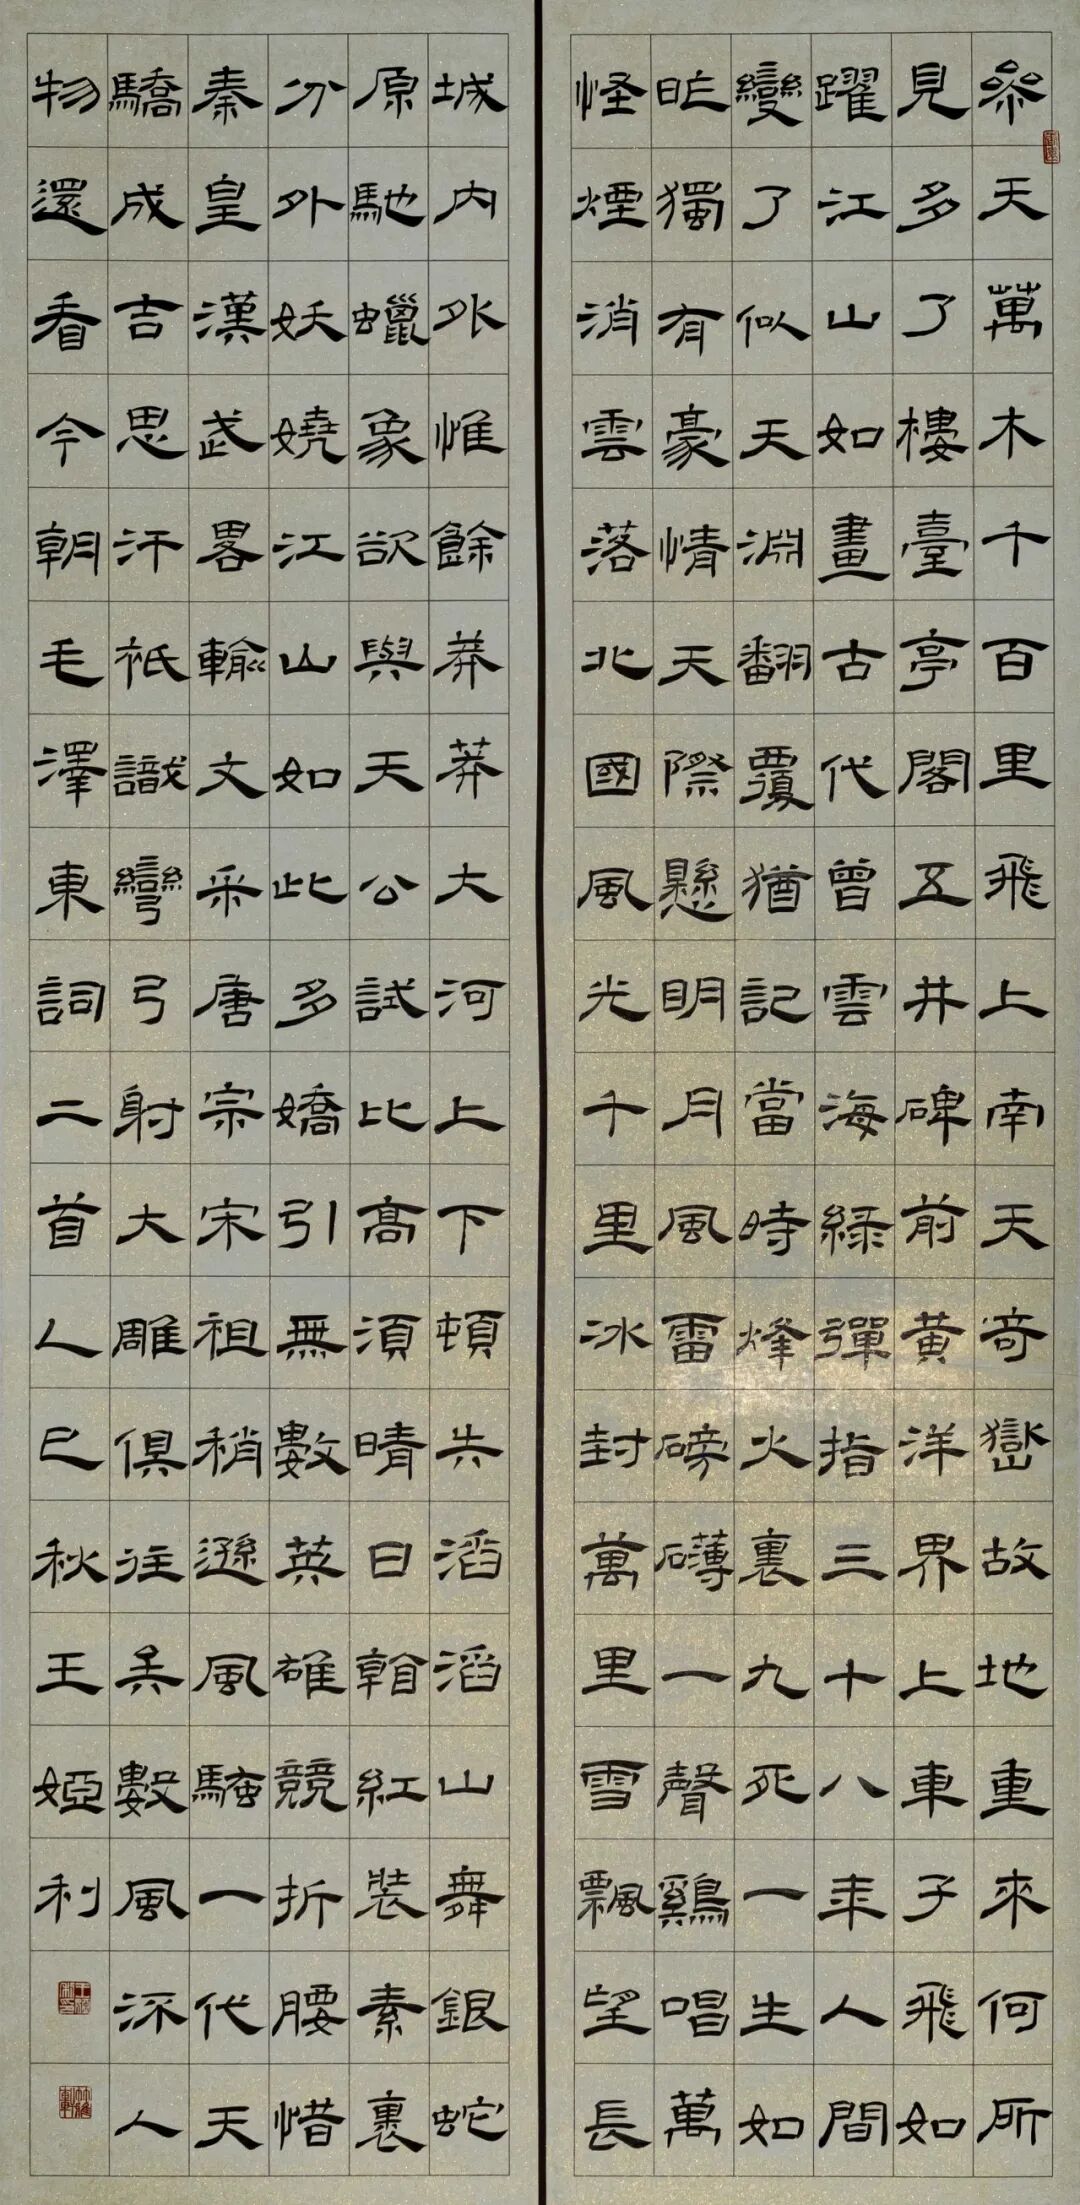 參天萬木千百里飛上南天奇嶽故地重來何所
見多了樓臺亭閣五井碑前黃洋界上車子飛如
躍江山如畫古代曾雲海綠彈指三十八年人間
變了似天淵翻覆猶記當時烽火裏九死一生如
昨獨有豪情天際懸明月風雷磅礴一聲鷄唱萬
怪煙消雲落北國風光千里冰封萬里雪飄望長
城內外惟餘莽莽大河上下頓失滔滔山舞銀蛇
原馳蠟象欲與天公試比高須晴日看紅裝素裹
分外妖嬈江山如此多嬌引無數英雄競折腰惜
秦皇漢武畧輸文采唐宗宋祖稍遜風騷一代天
驕成吉思汗祇識彎弓射大雕俱往矣數風流人
物還看今朝毛澤東詞二首乙巳秋王婭利